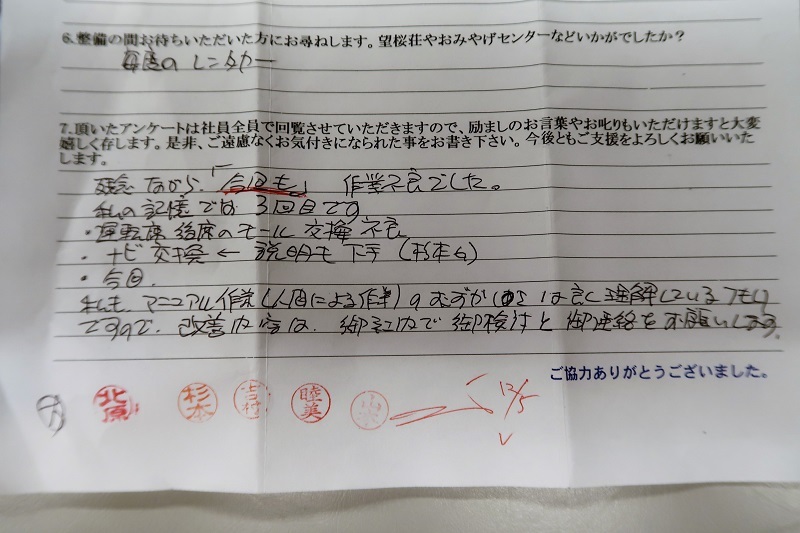 6.整備の間お待ちいただいた方にお尋ねします。望桜荘やおみやげセンターなどいかがでしたか？
毎度のレンタカー
7.頂いたアンケートは社員全員で回覧させていただきますので、励ましのお言葉やお叱りもいただけますと大変
嬉しく存します。是非、ご遠慮なくお気付きになられた事をお書き下さい。今後ともご支援をよろしくお願いいた
します。
残念ながら、「今回も。」作業不良でした。
私の記憶では3回目です
・運転席 後席のモール交換不良
・ナビ交換 ← 説明も下手(杉本さん)
・今回
私も、マニュアル作業(人間による作業)のむずかしさは良く理解しているつもり
ですので、改善内容は、御社内で御検討と御連絡をお願いします。
ご協力ありがとうございました。
北原 杉本 吉村 睦美 12/5